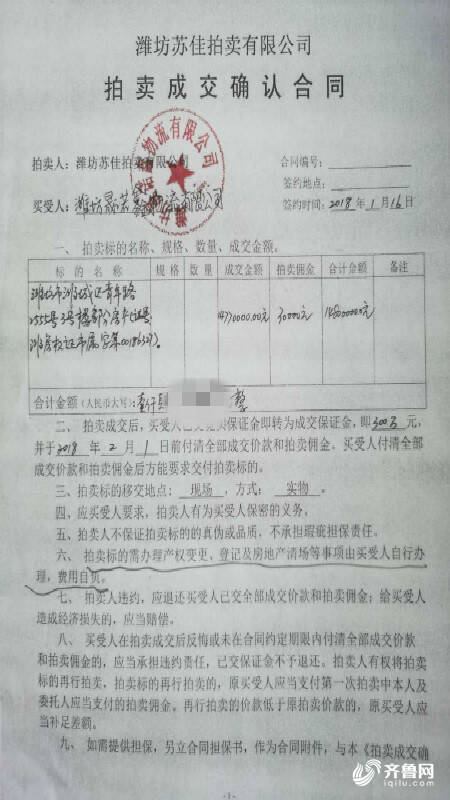 潍坊苏佳拍卖有限公司
拍卖成交确认合同
拍卖人：潍坊苏佳拍卖有限公司
合同编号：
签约地点：
买受人：潍坊 物流有限公司
签约时间：2018年1月16日
物流有限公司
一、拍卖标的名称、规格、数量、成交金额。
标的名称 规格 数量 成交金额 拍卖佣金 合计金额 备注
潍坊市潍城区青年路
2555号3号楼部分房产(证号
潍房权证市属字第00186327)。
14770000.00元 30000元 14800000元
合计金额（人民币大写）：壹仟 整
二、拍卖成交后，买受人已交竞买保证金即转为成交保证金，即300万元，
并于2018年2月1日前付清全部成交价款和拍卖佣金。买受人付清全部
成交价款和拍卖佣金后方能要求交付拍卖标的。
三、拍卖标的移交地点：现场，方式：实物。
四、应买受人要求，拍卖人有为买受人保密的义务。
五、拍卖人不保证拍卖标的的真伪或品质，不承担瑕疵担保责任。
六、拍卖标的需办理产权变更、登记及房地产清场等事项由买受人自行办
理，费用自负。
七、拍卖人违约，应退还买受人已交全部成交价款和拍卖佣金；给买受人
造成经济损失的，应当赔偿。
八、买受人在拍卖成交后反悔或未在合同约定期限内付清全部成交价款
和拍卖佣金的，应当承担违约责任，已交保证金不予退还。拍卖人有权将拍卖
标的再行拍卖，拍卖标的再行拍卖的，原买受人应当支付第一次拍卖中本人及
委托人应当支付的拍卖佣金。再行拍卖的价款低于原拍卖价款的，原买受人应
当补足差额。
九、如需提供担保，另立合同担保书，作为合同附件，与本《拍卖成交确
-1-
齐鲁网